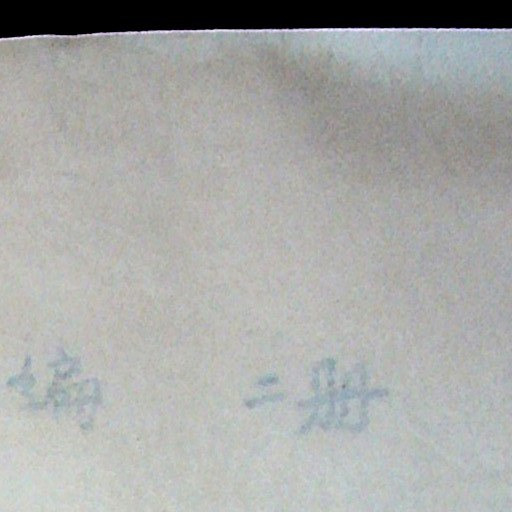 编 二册